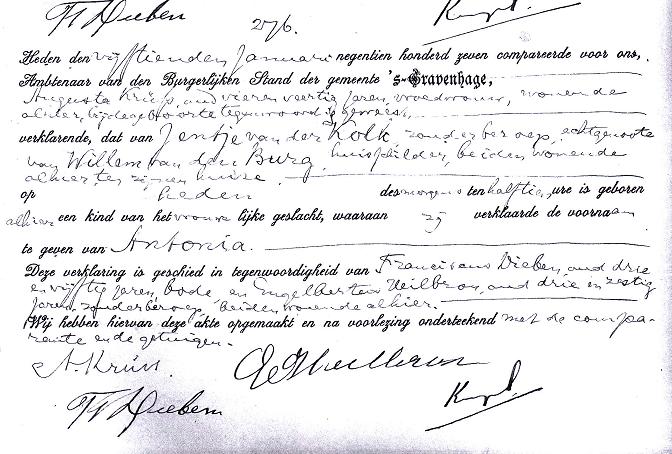 Fr Dieben
276.
Heden den vijftienden Januari negentien honderd zeven compareerde voor ons,
Ambtenaar van den Burgerlijken Stand der gemeente 's-Gravenhage,
Augusta oud vier en veertig jaren, vroedvrouw, wonende
alhier, bij de geboorte tegenwoordig geweest,
verklarende, dat van Jentje van der Kolk, zonder beroep, echtgenoote
van Willem van den Burg, huisschilder, beiden wonende
alhier, te zijnen huize
op heden des morgens ten half tien ure is geboren
alhier een kind van het vrouwelijke geslacht, waaraan zij verklaarde de voornaam
te geven van Antonia.
Deze verklaring is geschied in tegenwoordigheid van Franciscus Dieben, oud drie
en vijftig jaren, bode, en Engelbertus Heilbron, oud drie en zestig
jaren, zonder beroep, beiden wonende alhier.
Wij hebben hiervan deze akte opgemaakt en na voorlezing onderteekend met de compa-
rante en de getuigen.
Fr Dieben